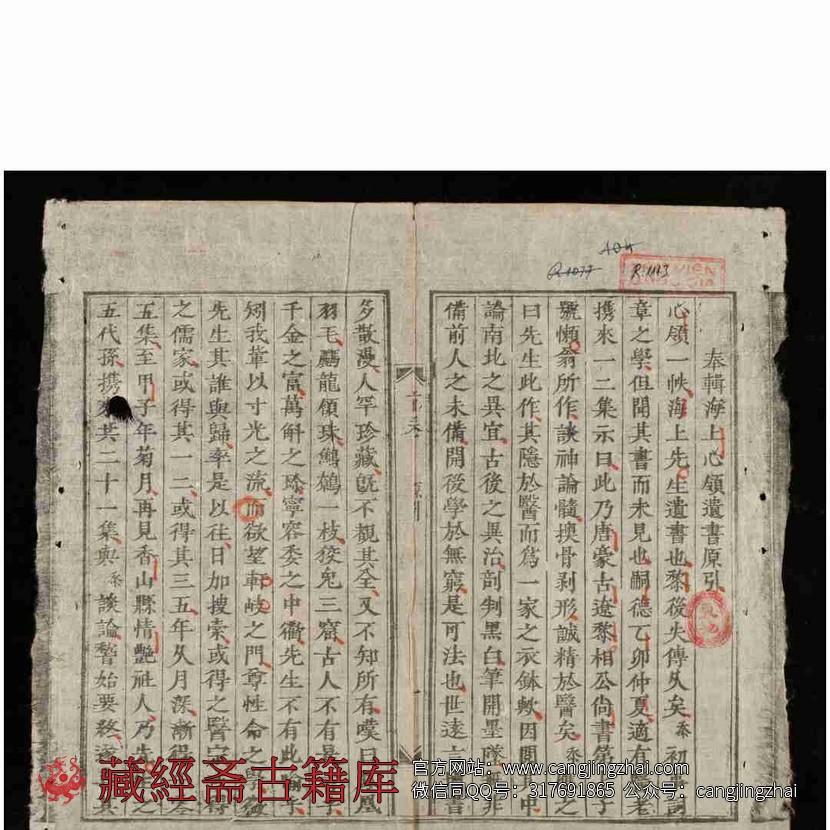 奉輯海上心領遺書原引
心領一帙海上先生遺書也黎後失傳久矣 初
章之學但聞其書而未見也嗣德乙卯仲夏適有 老
携來一二集示曰此乃唐豪古遼黎相公尚書第 子
號懶翁所作談神論髓換骨剥形誠精於醫矣 之
曰先生此作其隱於醫而爲一家之衣鉢歟因閱其中
論南北之異宜古後之異治剖判黑白筆開墨 非
備前人之未備開後學於無窮是可法也世遠言 書
首卷
原引
一
多散漫人罕珍藏旣不觀其全又不知所有嘆曰 鳳
羽毛驪龍領珠鷦鷯一枝狡兔三窟古人不有是 子
千金之富萬斛之 寧容委之中衢先生不有此 子
矧我華以寸光之流而欲望軒岐之門尊性命之
先生其誰與歸率是以往日加搜索或得之醫 得
之儒家或得其一二或得其三五年久月深漸得
五集至甲子年菊月再見香山縣情艷社人乃先 之
五代孫携 共二十一集與 談論醫始要終遂 其
R.1077
R.1113
藏經斋古籍库
官方网站：www.cangjingzhai.com
微信同QQ号：317691865 公众号：cangjingzhai